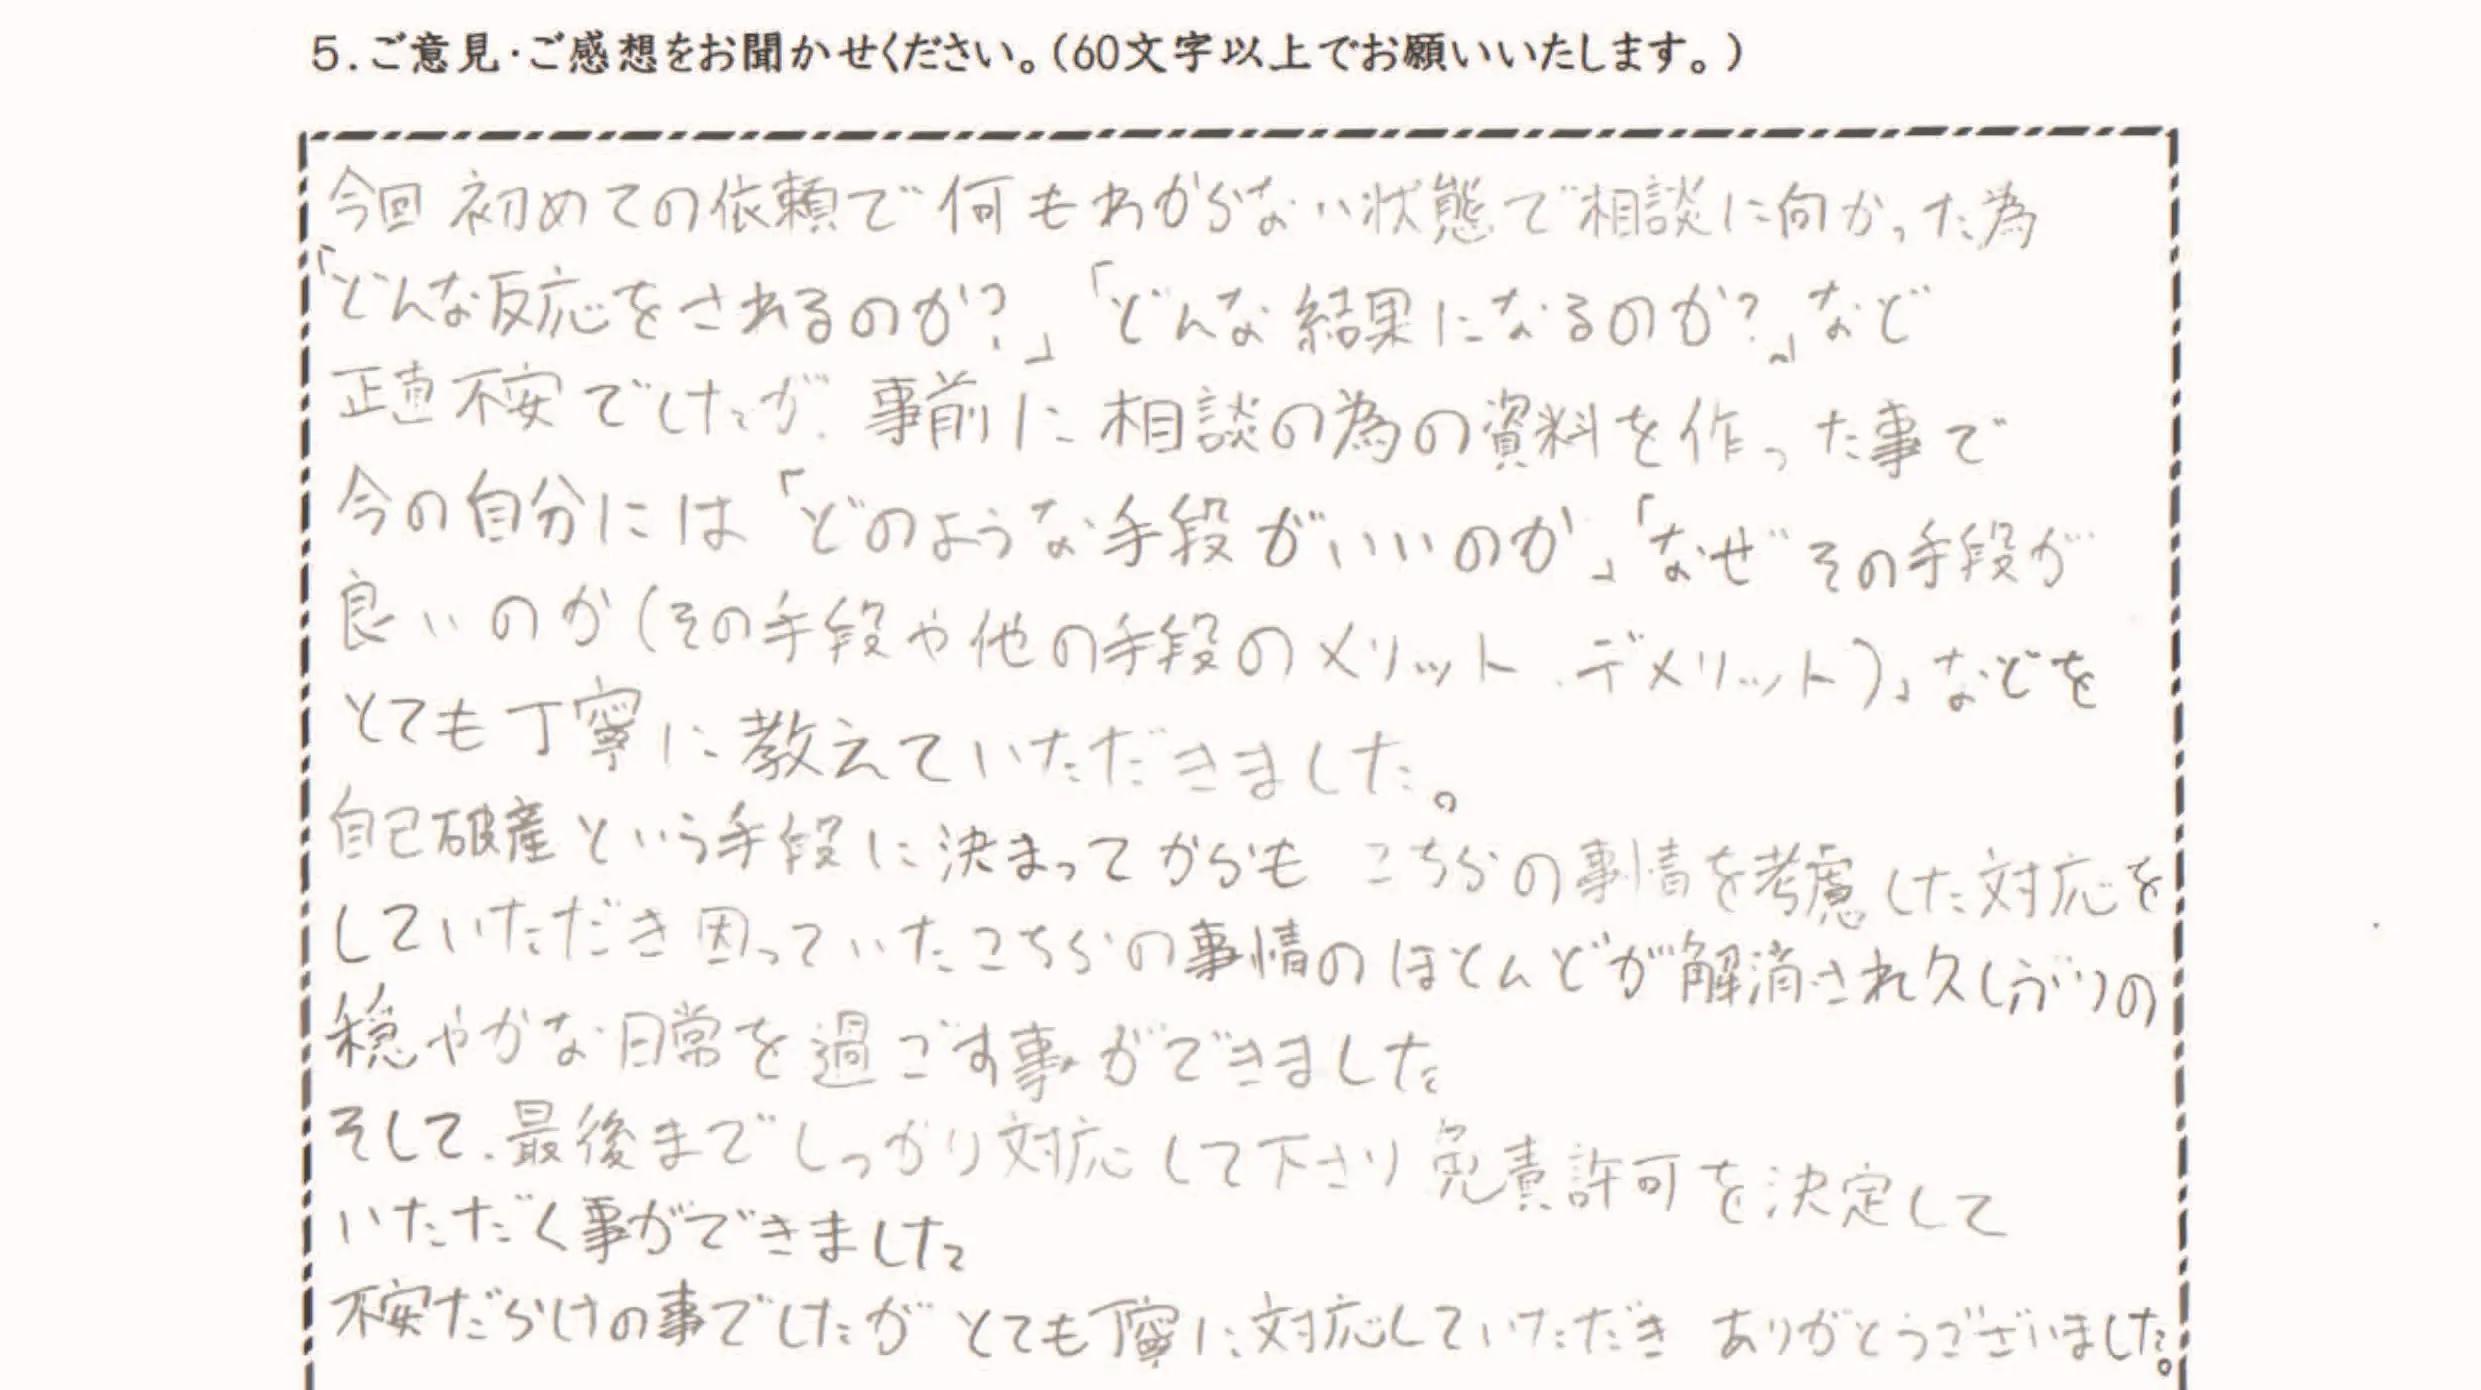 5.ご意見・ご感想をお聞かせください。(60文字以上でお願いいたします。)
今回 初めての依頼で 何もわからない状態で相談に向かった為
「どんな反応をされるのか?」「どんな結果になるのか?」など
正直不安でしたが、事前に相談の為の資料を作った事で
今の自分には「どのような手段がいいのか」「なぜその手段が
良いのか(その手段や他の手段のメリット、デメリット)」などを
とても丁寧に教えていただきました。
自己破産という手段に決まってからも こちらの事情を考慮した対応を
していただき困っていたこちらの事情のほとんどが解消され久しがりの
穏やかな日常を過ごす事ができました
そして、最後までしっかり対応して下さり免責許可を決定して
いただく事ができました
不安だらけの事でしたが とても丁寧に対応していただき ありがとうございました。